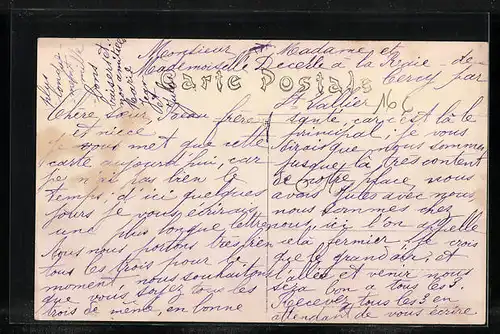 Monsieur et Madame et
Mademoiselle Decelle à la Régie de
Cercy par
Carte Postale
St Vallier
Chère Sœur, Beau frère
et nièce
je vous met que cette
carte aujourd'hui, car
je n'ai pas bien le
temps, d'ici quelques
jours je vous écrirais
une plus longue lettre
nous nous portons très bien
tous les trois pour le
moment, nous souhaitons
que vous soyez tous les
trois de même, en bonne
santé, car c'est là le
principal; je vous
dirais que nous sommes
jusque là très content
de notre place, nous
avons Jules avec nous,
nous sommes chez
nous, ici l'on appelle
cela fermier, je crois
que le grand air, et
l'allée et venir nous
fera bon a tous les 3.
Recevez tous les 3 en
attendant de vous écrire
plus
famille
bons et
baisers et
nos amitiés
Marie